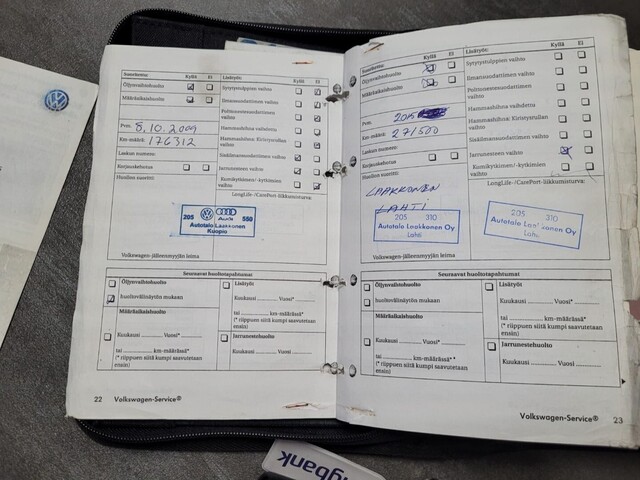 Suoritettu: Kyllä Ei Lisätyöt: Kyllä Ei
Öljynvaihtohuolto Sytytystulppien vaihto
Määräaikaishuolto Ilmansuodattimen vaihto
Polttoainesuodattimen vaihto
Pvm. 8.10.2009 Hammashihna vaihdettu
Km-määrä: 176312 Hammashihna: Kiristysrullan vaihto
Laskun numero: Sisäilmansuodattimen vaihto
Korjauskehotus Jarrunesteen vaihto
Huollon suoritti: Kumikytkimen/-kytkimien vaihto
LongLife-/CarePort-liikkumisturva:
205 Audi 550
Autotalo Laakkonen
Kuopio
Volkswagen-jälleenmyyjän leima
Seuraavat huoltotapahtumat
Öljynvaihtohuolto
huoltovälinäytön mukaan
Määräaikaishuolto
Kuukausi Vuosi*
tai km-määrässä*
(* riippuen siitä kumpi saavutetaan ensin)
Lisätyöt
Kuukausi Vuosi*
tai km-määrässä*
(* riippuen siitä kumpi saavutetaan ensin)
Jarrunestehuolto
Kuukausi Vuosi
22 Volkswagen-Service®
Suoritettu: Kyllä Ei Lisätyöt: Kyllä Ei
Öljynvaihtohuolto Sytytystulppien vaihto
Määräaikaishuolto Ilmansuodattimen vaihto
Polttoainesuodattimen vaihto
Pvm. 2015 Hammashihna vaihdettu
Km-määrä: 271500 Hammashihna: Kiristysrullan vaihto
Laskun numero: Sisäilmansuodattimen vaihto
Korjauskehotus Jarrunesteen vaihto
Huollon suoritti: Kumikytkimen/-kytkimien vaihto
LAAKKONEN
LAHTI
LongLife-/CarePort-liikkumisturva:
205 310
Autotalo Laakkonen Oy
Lahti
205 310
Autotalo Laakkonen Oy
Lahti
Volkswagen-jälleenmyyjän leima
Seuraavat huoltotapahtumat
Öljynvaihtohuolto
huoltovälinäytön mukaan
Määräaikaishuolto
Kuukausi Vuosi*
tai km-määrässä*
(* riippuen siitä kumpi saavutetaan ensin)
Lisätyöt
Kuukausi Vuosi*
tai km-määrässä*
(* riippuen siitä kumpi saavutetaan ensin)
Jarrunestehuolto
Kuukausi Vuosi
Volkswagen-Service® 23